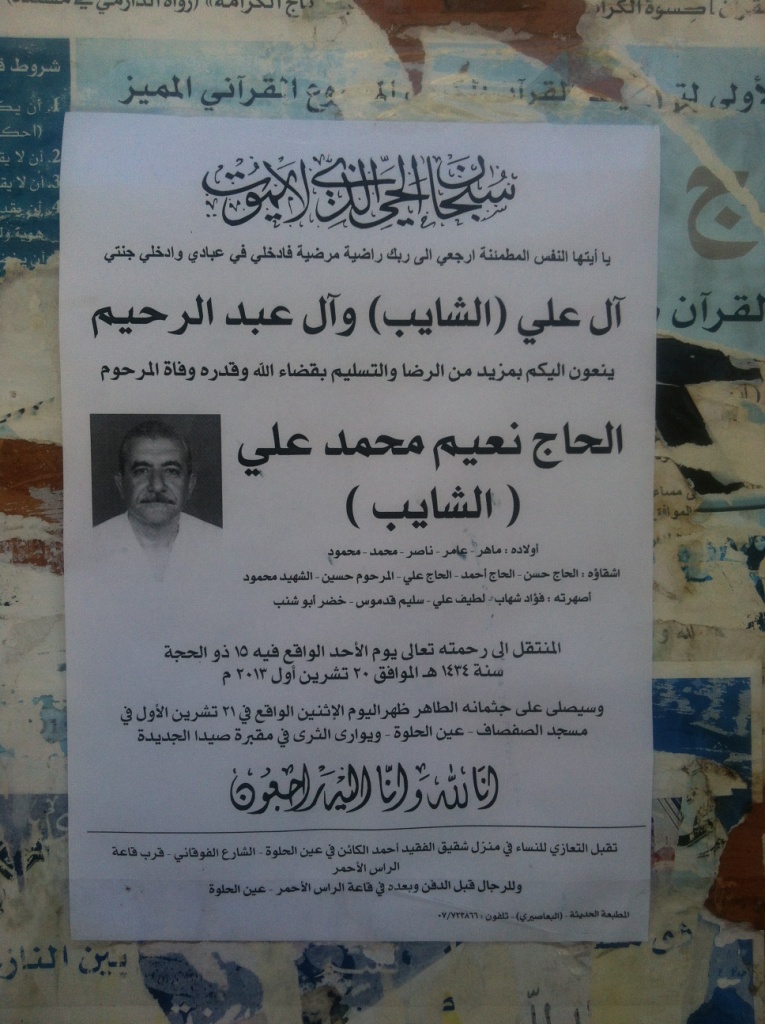 تاج الكرامة» (رواه الدارمي في
شروط
الأولى
القرآني المميز
سُبْحَانَ الحَيِّ الَّذِي لَا يَمُوت
يا أيتها النفس المطمئنة ارجعي الى ربك راضية مرضية فادخلي في عبادي وادخلي جنتي
آل علي (الشايب) وآل عبد الرحيم
القرآن
ينعون اليكم بمزيد من الرضا والتسليم بقضاء الله وقدره وفاة المرحوم
الحاج نعيم محمد علي
( الشايب )
أولاده : ماهر - عامر - ناصر - محمد - محمود
اشقاؤه : الحاج حسن - الحاج أحمد - الحاج علي - المرحوم حسين - الشهيد محمود
أصهرته : فؤاد شهاب - لطيف علي - سليم قدموس - خضر أبو شنب
المنتقل الى رحمته تعالى يوم الأحد الواقع فيه ١٥ ذو الحجة
سنة ١٤٣٤ هـ الموافق ٢٠ تشرين أول ٢٠١٣ م
وسيصلى على جثمانه الطاهر ظهر اليوم الإثنين الواقع في ٢١ تشرين الأول في
مسجد الصفصاف - عين الحلوة - ويوارى الثرى في مقبرة صيدا الجديدة
انا لله وانا اليه راجعون
تقبل التعازي للنساء في منزل شقيق الفقيد أحمد الكائن في عين الحلوة - الشارع الفوقاني - قرب قاعة
الراس الأحمر
وللرجال قبل الدفن وبعده في قاعة الراس الأحمر - عين الحلوة
المطبعة الحديثة - (البعاصيري) - تلفون : ٠٧/٧٢٢٨٦٦
بين النار